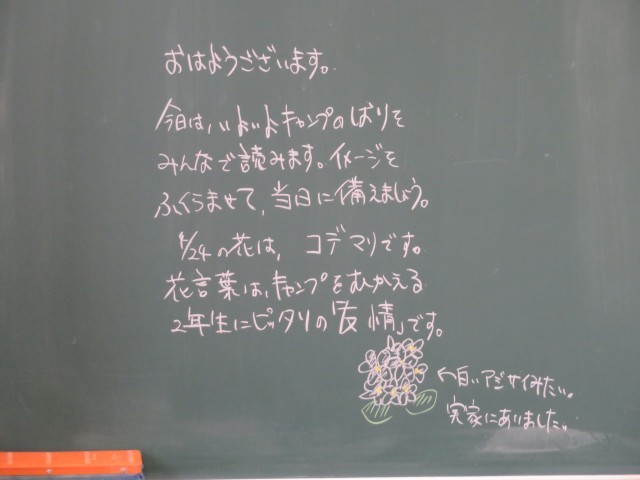 おはようございます。
今日は、いよいよキャンプのしおりを
みんなで読みます。イメージを
ふくらませて、当日に備えましょう。
5/24の花は、コデマリです。
花言葉は、キャンプをむかえる
2年生にピッタリの「友情」です。
白いアジサイみたい。
実家にありました。